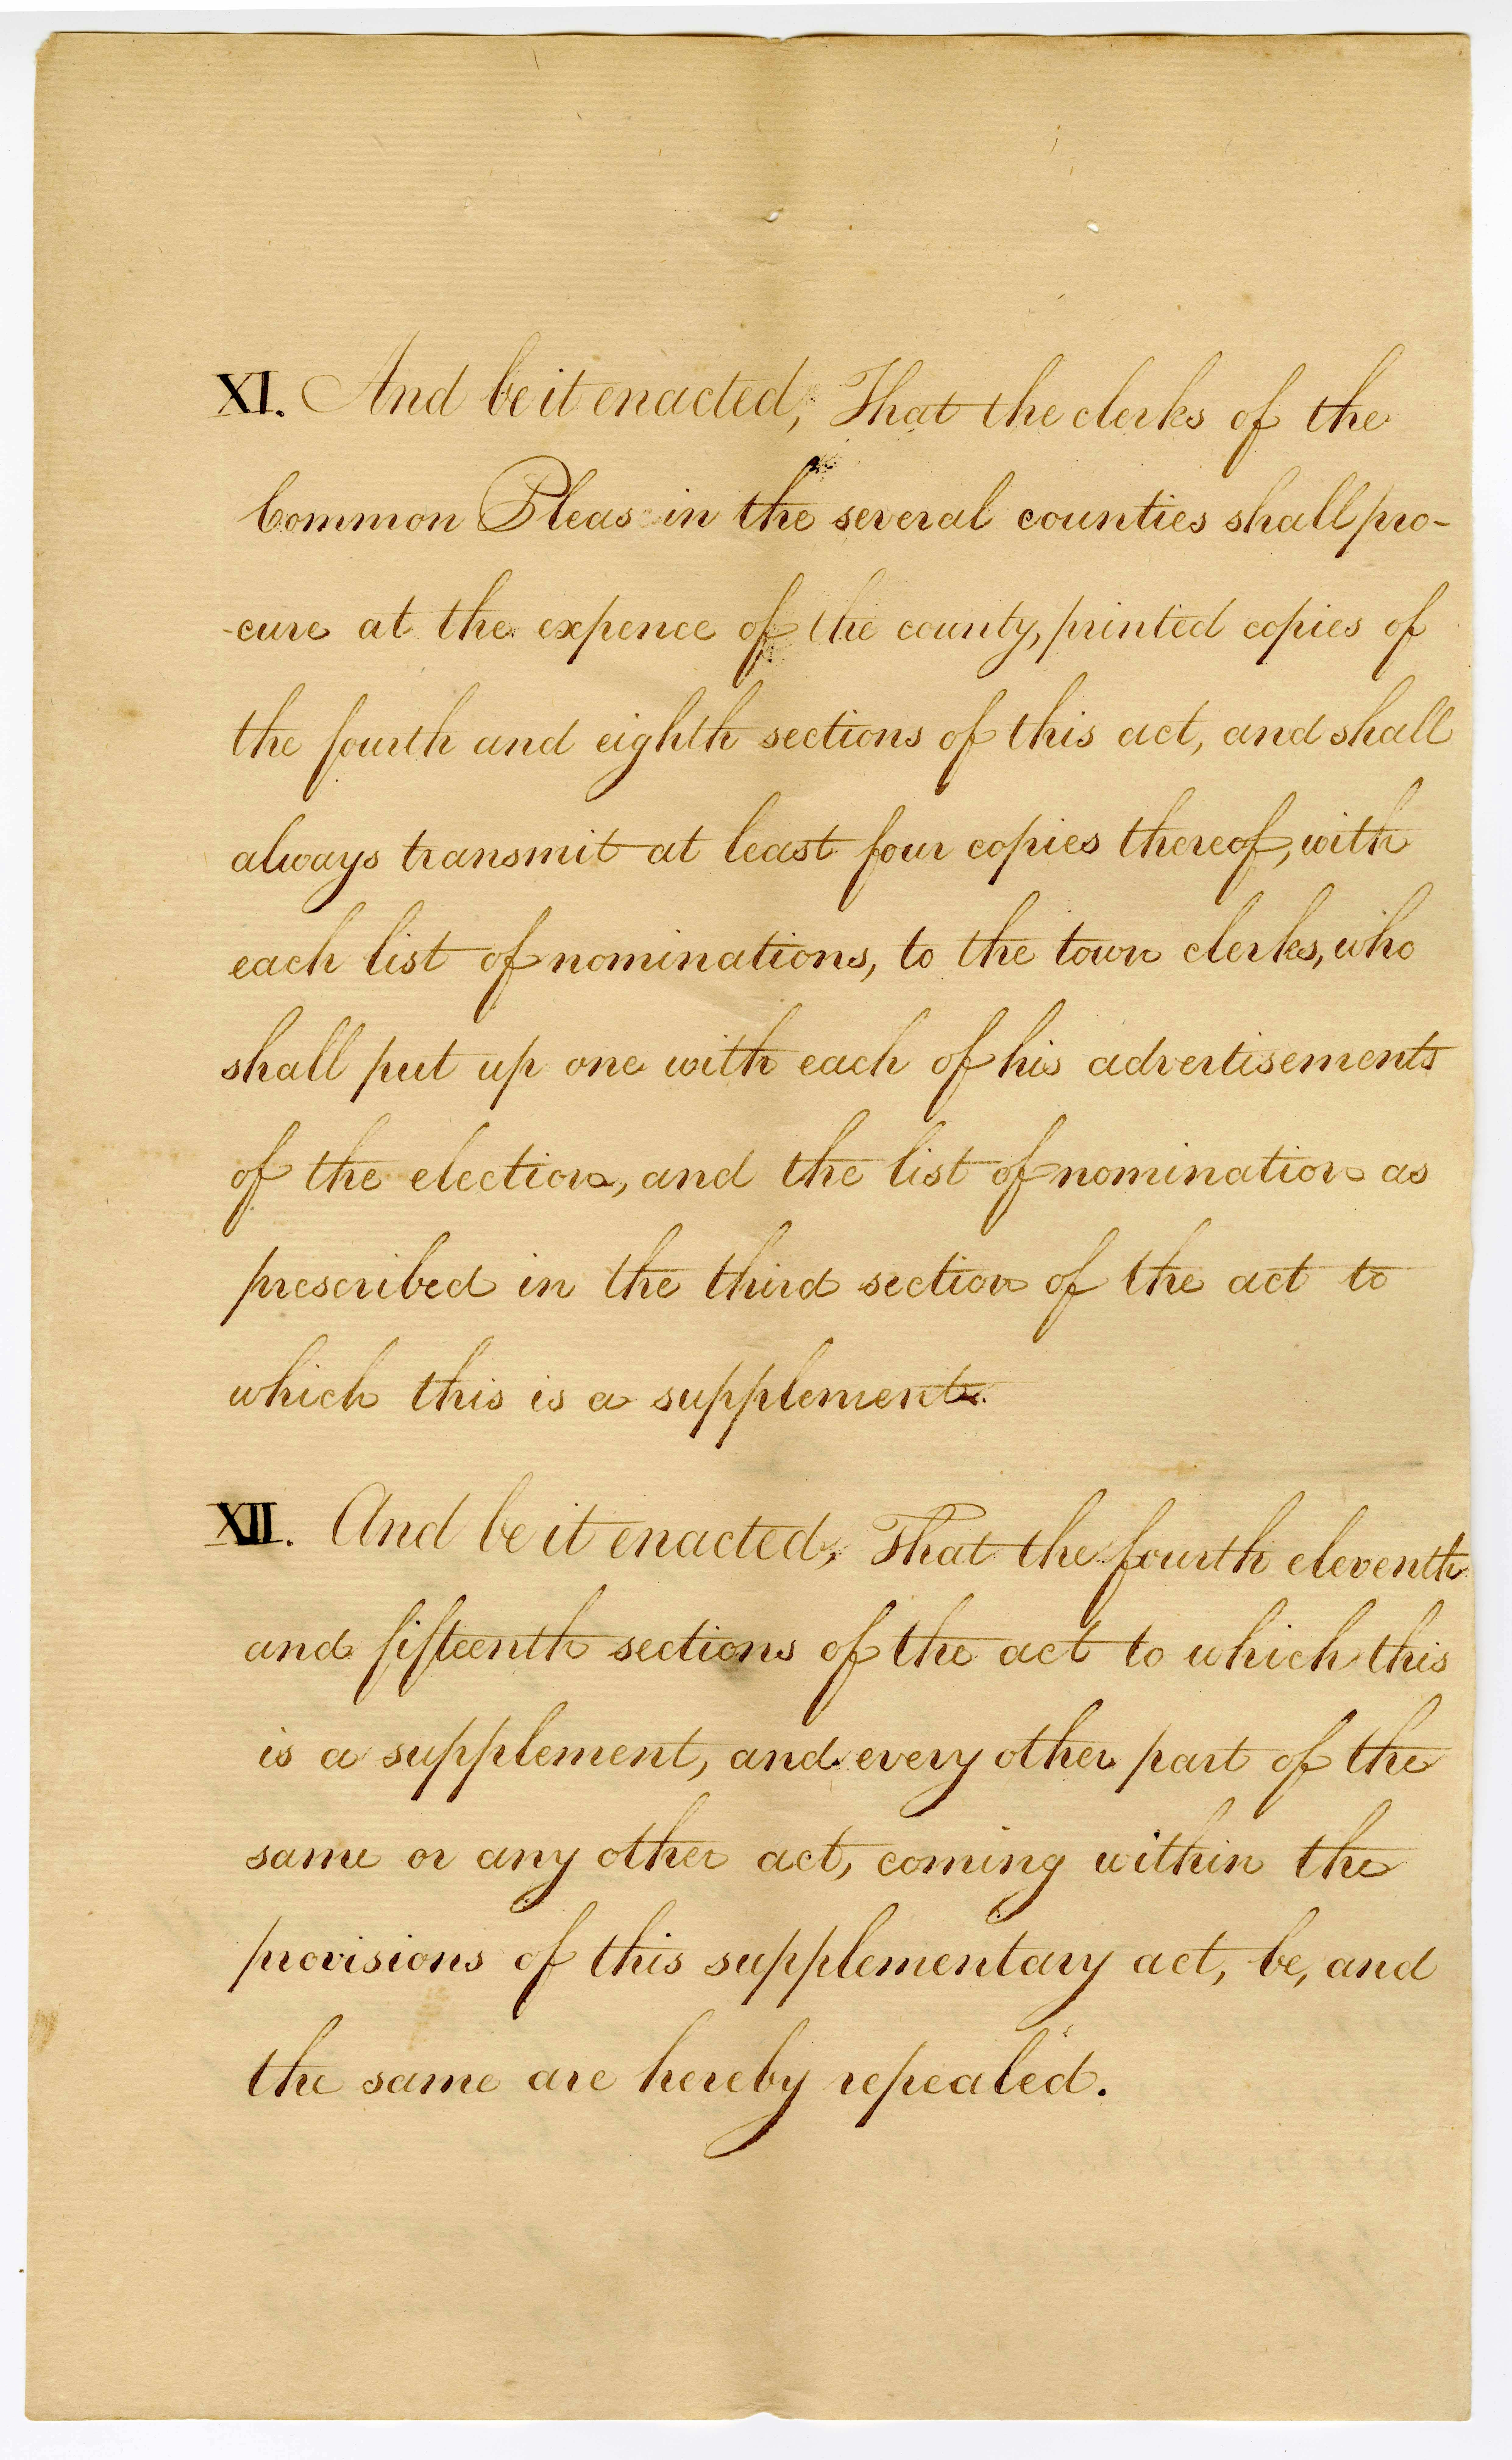 XI. And be it enacted, That the clerks of the
Common Pleas in the several counties shall pro-
-cure at the expence of the county, printed copies of
the fourth and eighth sections of this act, and shall
always transmit at least four copies thereof, with
each list of nominations, to the town clerks, who
shall put up one with each of his advertisements
of the election, and the list of nomination as
prescribed in the third section of the act to
which this is a supplement.
XII. And be it enacted, That the fourth eleventh
and fifteenth sections of the act to which this
is a supplement, and every other part of the
same or any other act, coming within the
provisions of this supplementary act, be, and
the same are hereby repealed.